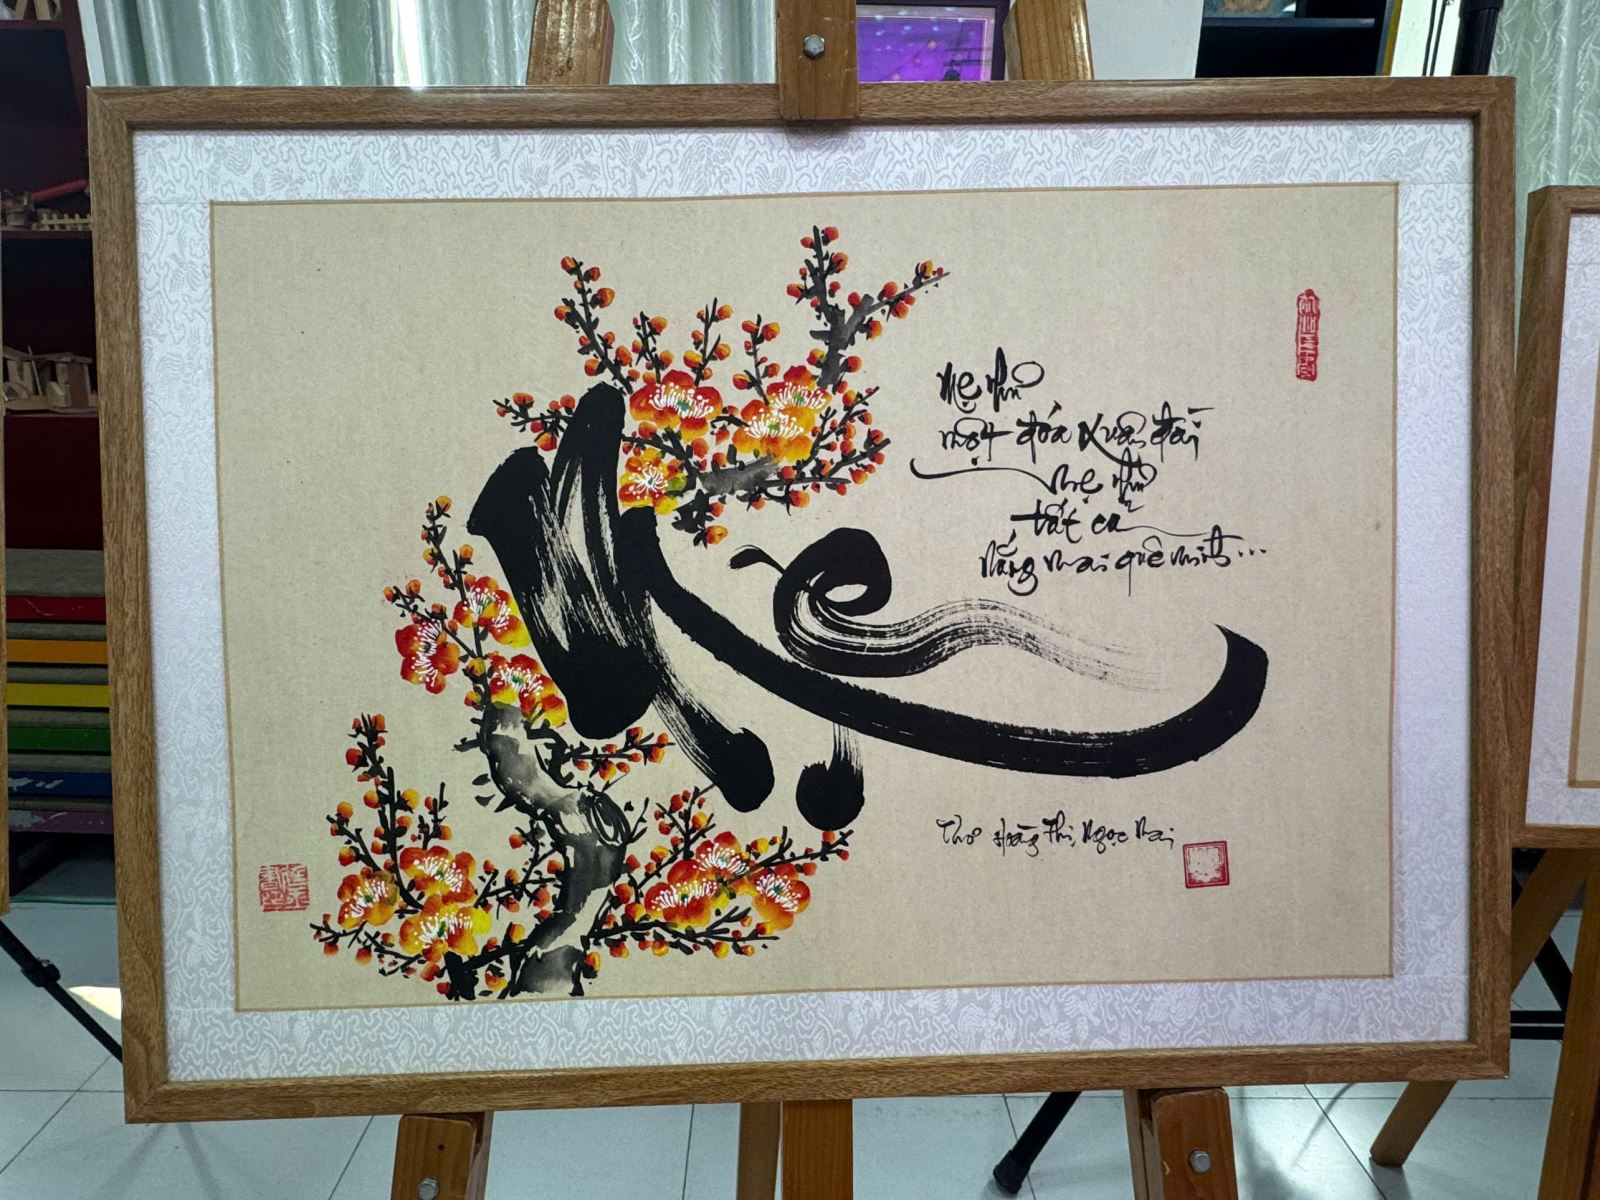 Mẹ
Mẹ như
một đóa xuân đài
mẹ như
tất cả
nắng mai quê mình...
Thơ Hoàng Thị Ngọc Mai